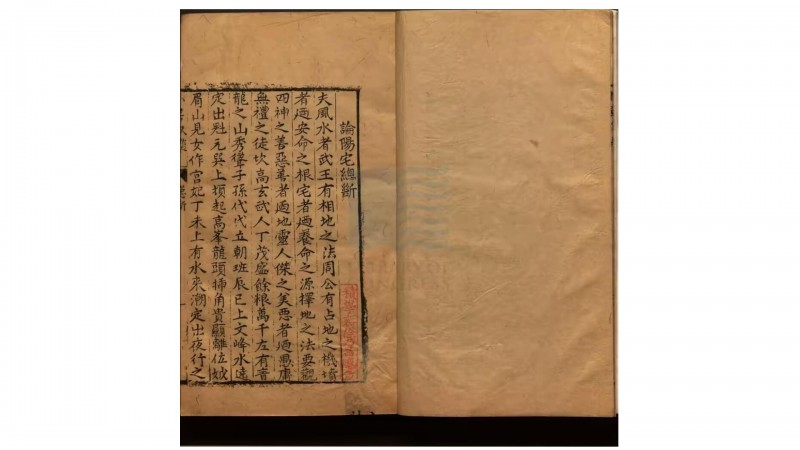 論陽宅總斷
夫風水者武王有相地之法周公有占地之機墳
者廼安命之根宅者廼養命之源擇地之法要觀
四神之善惡善者廼地靈人傑之美惡者廼愚庸
無禮之徒坎高玄武人丁茂盛餘粮萬千左有青
龍之山秀聳子孫代代立朝班辰巳上文峰水遠
定出魁元巽上頓起高峯龍頭插角貴顯離位蛾
眉山見女作宮妃丁未上有水來潮定出夜行之